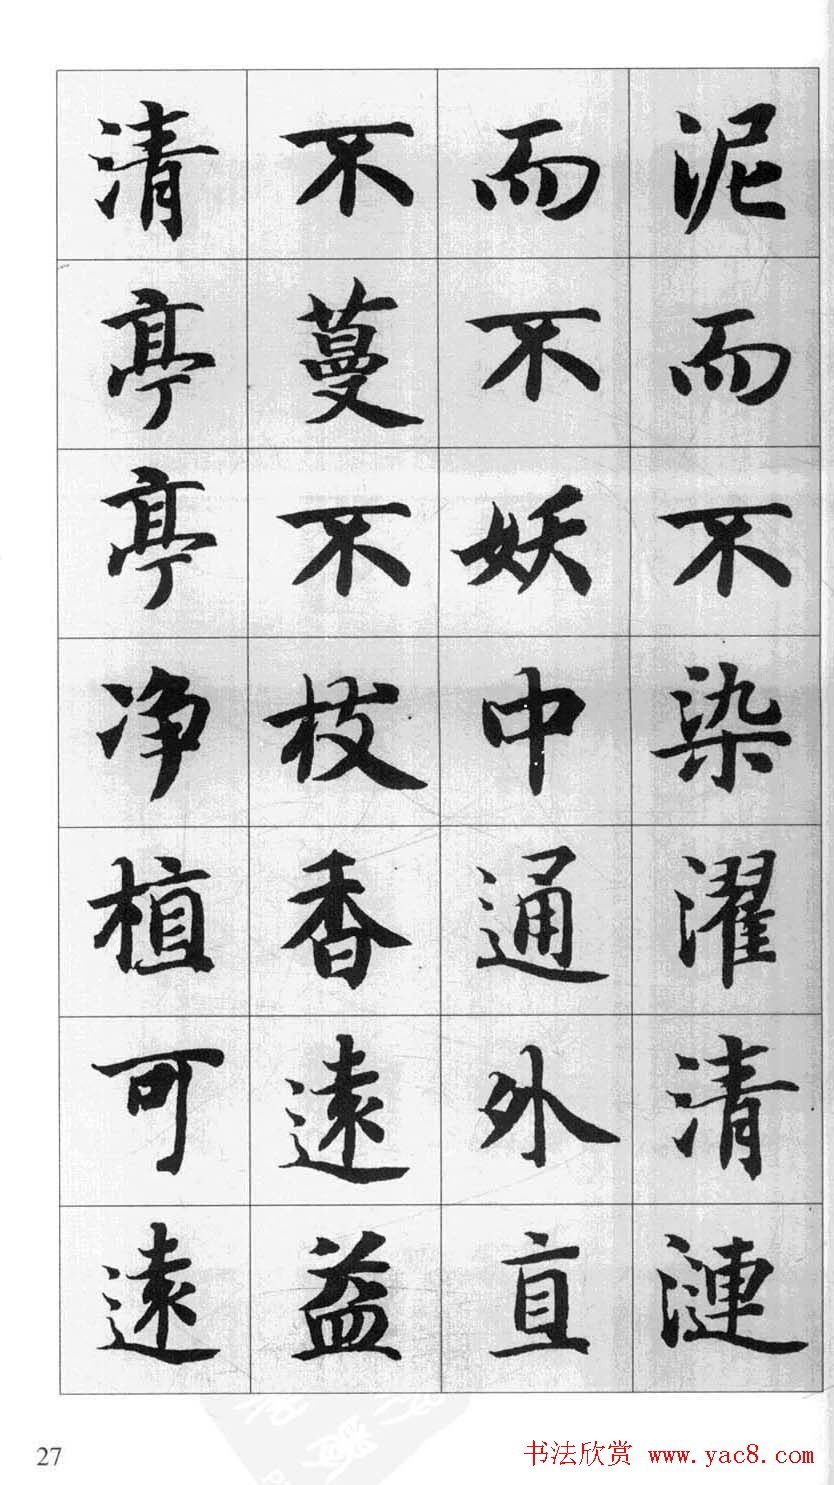 泥而不染濯清漣
而不妖中通外直
不蔓不枝香遠益
清亭亭净植可遠
27
书法欣赏 www.yac8.com